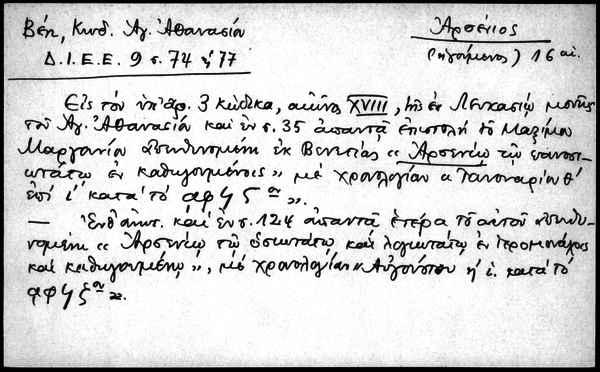 Βέη, Κωδ. Ἁγ. Ἀθανασίου
Δ.Ι.Ε.Ε. 9 σ. 74 ἢ 77
Ἀρσένιος
(ἡγούμενος) 16 αἰ.
Εἰς τὸν ὑπ' ἀρ. 3 κώδικα, αἰῶνος XVIII, τῆς ἐν Λευκασίῳ μονῆς
τοῦ Ἁγ. Ἀθανασίου καὶ ἐν σ. 35 ἀπαντᾷ ἐπιστολὴ τοῦ Μαξίμου
Μαργουνίου ἀπευθυνομένη ἐκ Βενετίας « Ἀρσενίῳ τῷ πανοσι-
ωτάτῳ ἐν καθηγουμένοις » μὲ χρονολογίαν « Ἰανουαρίου θ'
ἐπὶ ι' κατὰ τὸ αφϟςον ».
— Ἐνθ' ἀνωτ. καὶ ἐν σ. 124 ἀπαντᾷ ἑτέρα τοῦ αὐτοῦ ἀπευθυ-
νομένη « Ἀρσενίῳ τῷ ὁσιωτάτῳ καὶ λογιωτάτῳ ἐν ἱερομονάχοις
καὶ καθηγουμένῳ », μὲ χρονολογίαν « Αὐγούστου η' ι. κατὰ τὸ
αφϟξον ».